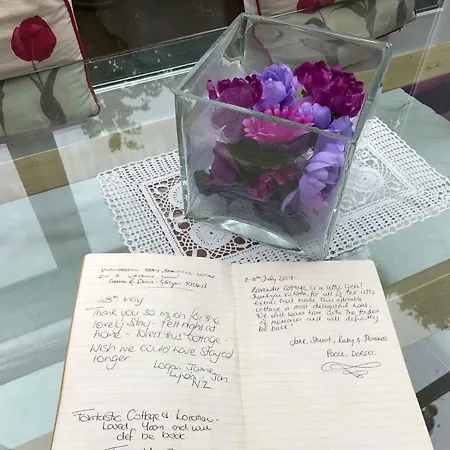 Wonderful stay, beautiful cottage
28th May
Thank you so much for the
lovely stay - felt right at
home - loved this cottage -
wish we could have stayed
longer.
NZ
Fantastic Cottage & Location -
Loved Yoon and will
def be back
8-10th July 2017
Lavender Cottage is a little gem!
Thankyou Victoria, for all of the little
extras that made this adorable
cottage a most delightful home.
We will leave here with the fondest
of memories and will definitely
be back!
Jane, Stuart, Ruby & Florence
Poole, Dorset.